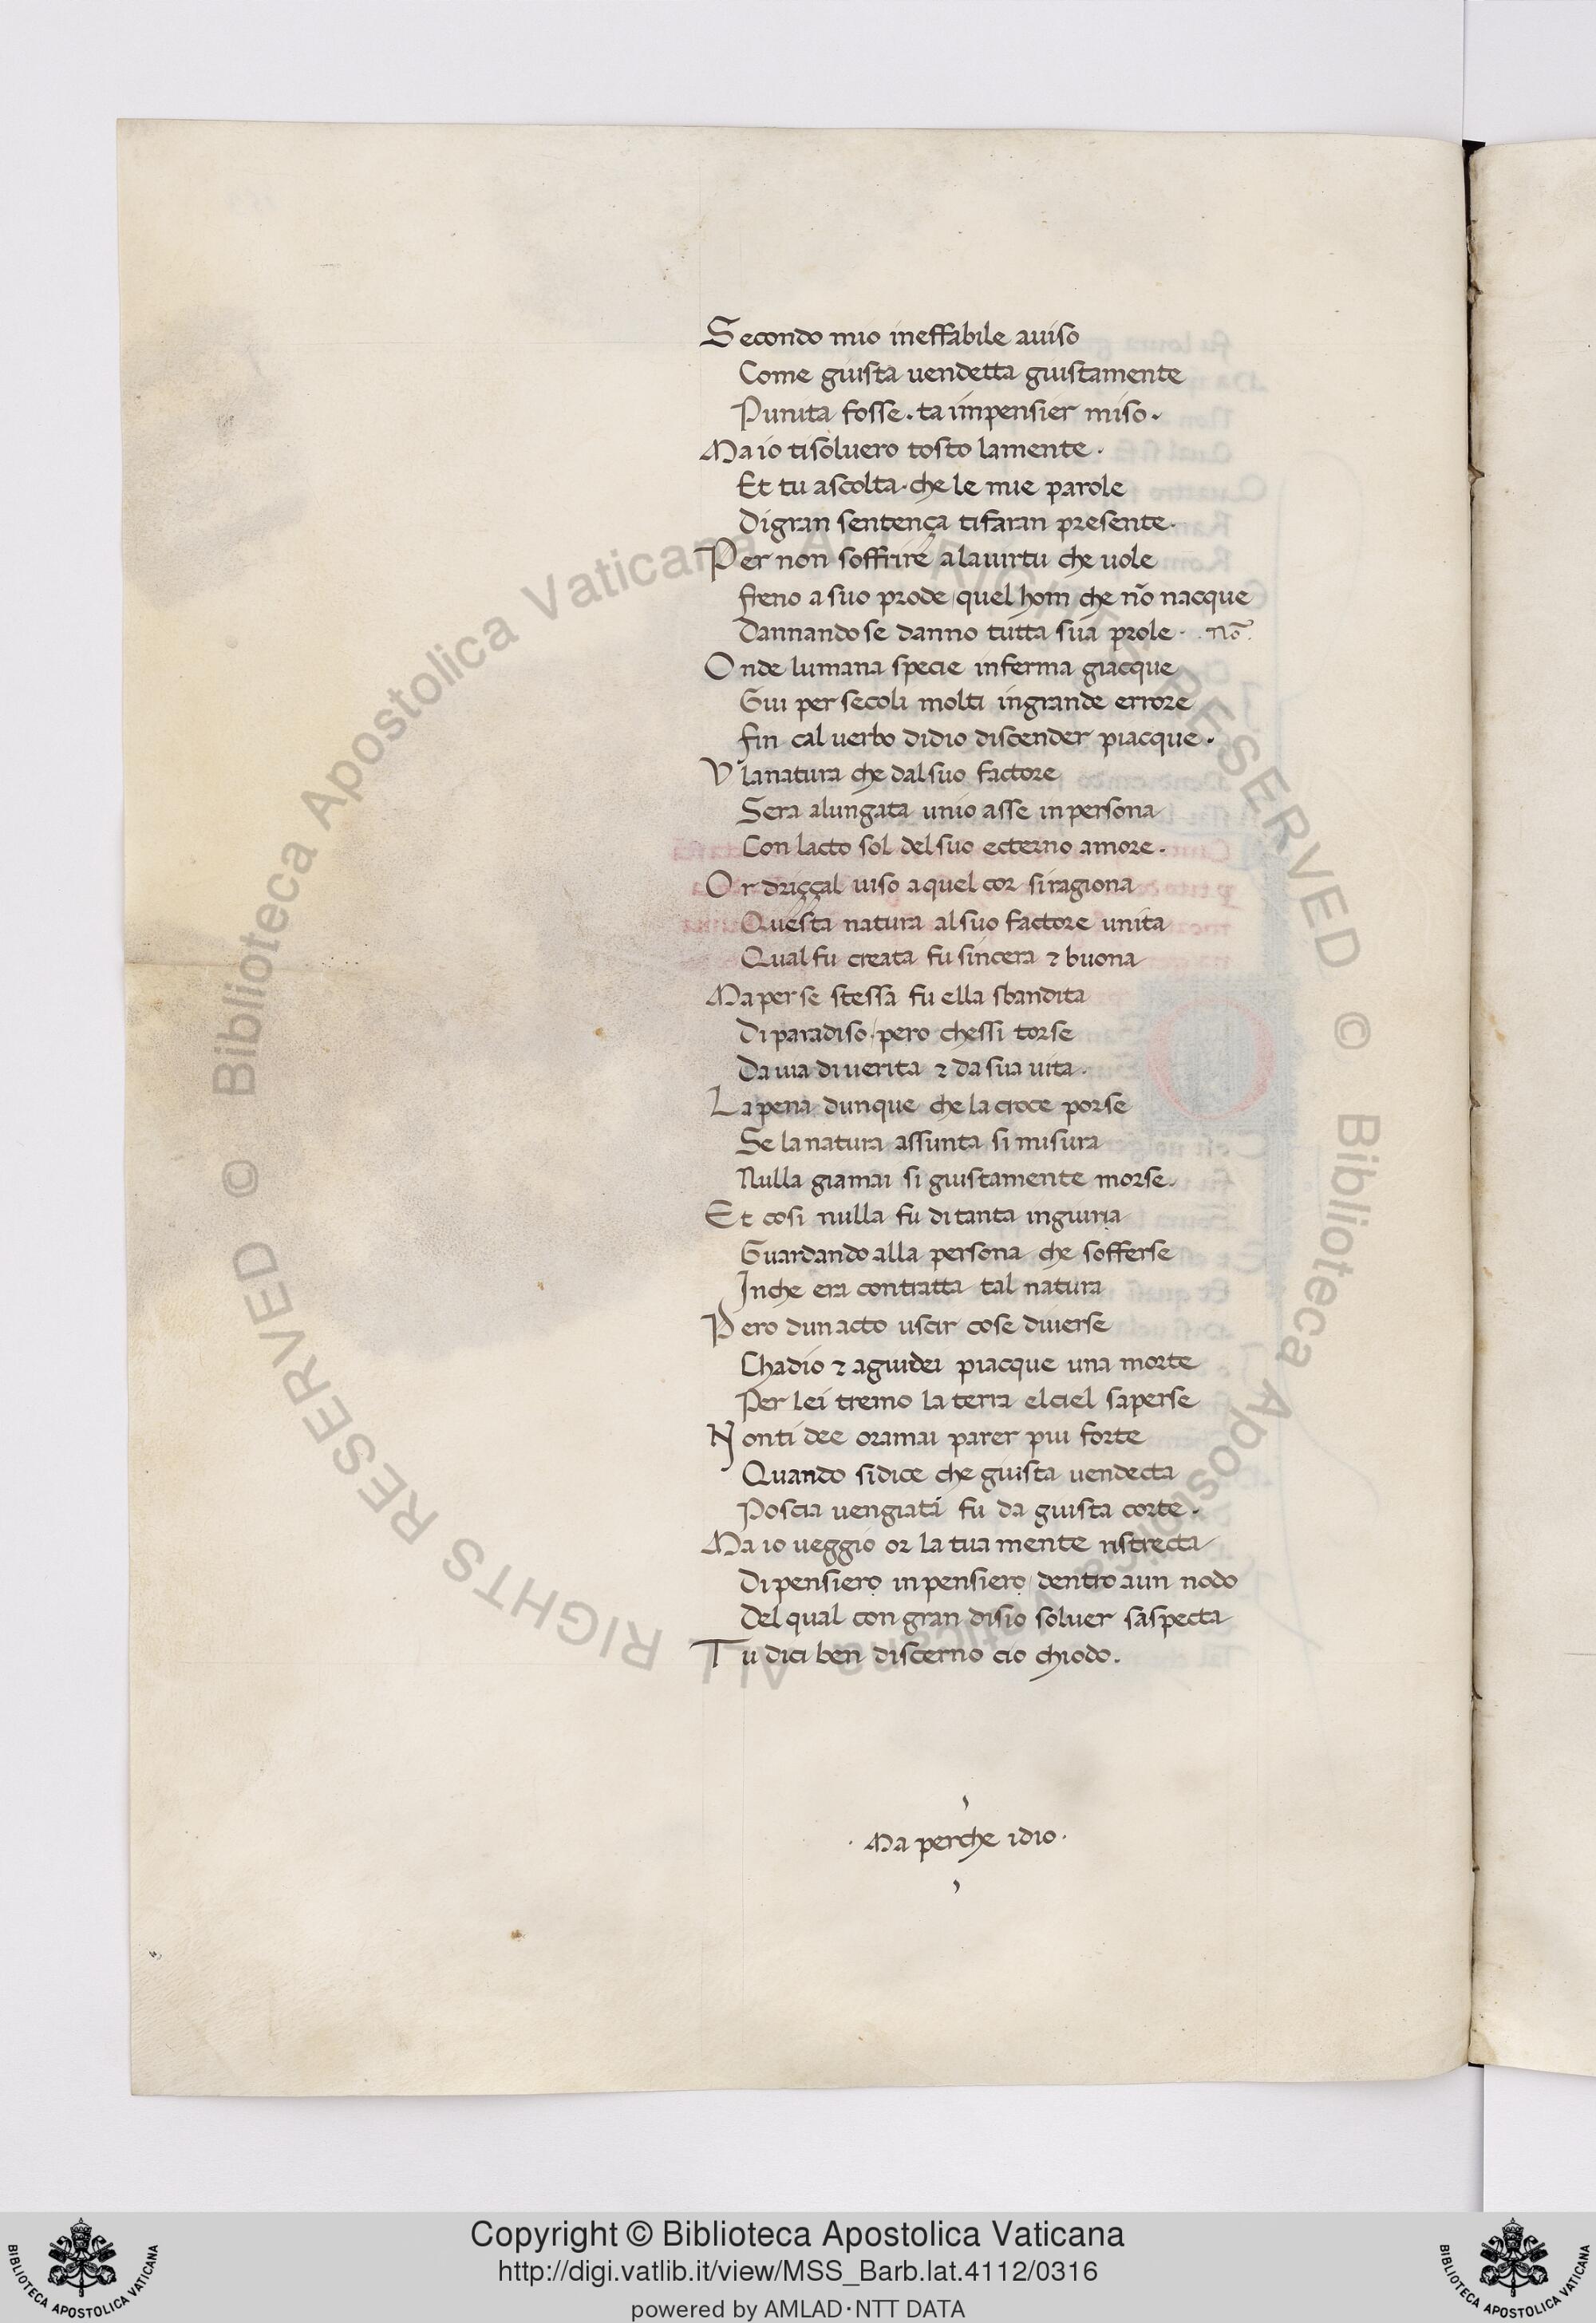 Secondo mio ineffabile aviso
Come giusta uendetta giustamente
Punita fosse. ta impensier miso.
Ma io tisoluero tosto lamente.
Et tu ascolta. che le mie parole
Digran sentença tifaran presente.
Per non soffrire alauirtu che uole
freno a suo prode / quel hom che nõ nacque
Dannando se danno tutta sua prole. nõ.
Onde lumana specie inferma giacque
Giu per secoli molti ingrande errore
fin cal uerbo didio discender piacque.
V'lanatura che dalsuo factore
Sera alungata unio asse inpersona
Con lacto sol delsuo ecterno amore.
Or driççal uiso aquel cor siragiona
Questa natura alsuo factore unita
Qual fu creata fu sincera ⁊ buona
Ma per se stessa fu ella sbandita
Di paradiso / pero chessi torse
Da uia di uerita ⁊ da sua uita.
La pena dunque che la croce porse
Se la natura assunta si misura
Nulla giamai si giustamente morse.
Et cosi nulla fu di tanta ingiuria
Guardando alla persona che sofferse
Inche era contratta tal natura
Pero dun acto uscir cose diuerse
Chadio ⁊ agiudei piacque una morte
Per lei tremo la terra elciel saperse
Nonti dee oramai parer piu forte
Quando sidice che giusta uendecta
Poscia uengiata fu da giusta corte.
Ma io ueggio or la tua mente ristrecta
Di pensiero inpensiero dentro aun nodo
Del qual con gran disio soluer saspecta
Tu dici ben discerno cio chiodo.
. Ma perche idio .
Biblioteca Apostolica Vaticana ALL RIGHTS RESERVED ©
Biblioteca Apostolica Vaticana ALL RIGHTS RESERVED ©
Copyright © Biblioteca Apostolica Vaticana
http://digi.vatlib.it/view/MSS_Barb.lat.4112/0316
powered by AMLAD·NTT DATA
BIBLIOTECA APOSTOLICA VATICANA
BIBLIOTECA APOSTOLICA VATICANA